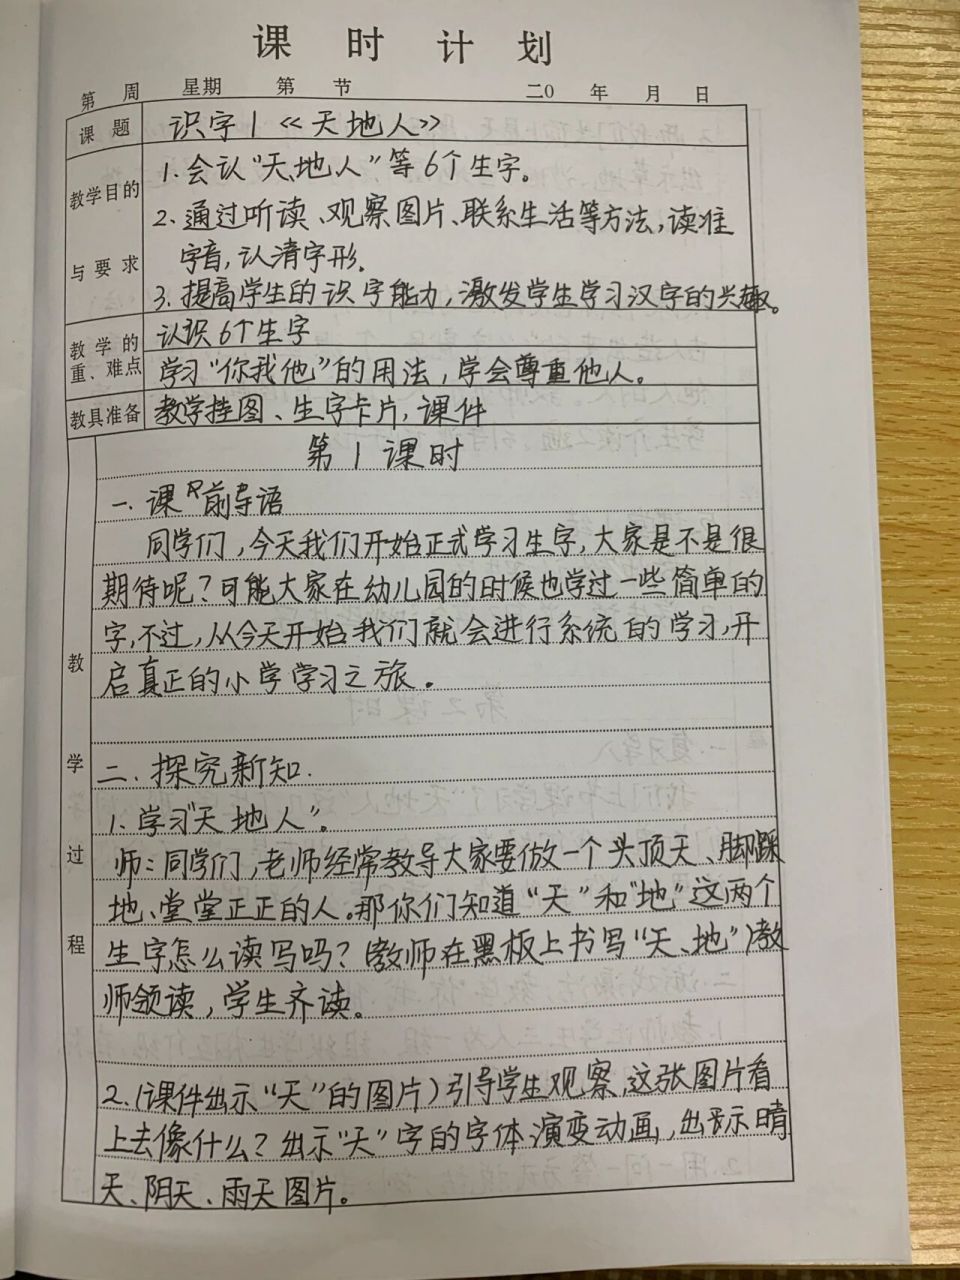 课 时 计 划
第 周 星期 第 节 二0 年 月 日
课 题 识字1《天地人》
教学目的与要求
1.会认“天、地人”等6个生字。
2、通过听读、观察图片、联系生活等方法,读准
字音,认清字形.
3.提高学生的识字能力,激发学生学习汉字的兴趣。
教学的重、难点
认识6个生字
学习“你我他”的用法,学会尊重他人。
教具准备 教学挂图、生字卡片,课件
教学过程
第1课时
一.课前导语
同学们,今天我们开始正式学习生字,大家是不是很
期待呢?可能大家在幼儿园的时候也学过一些简单的
字,不过,从今天开始我们就会进行系统的学习,开
启真正的小学学习之旅.
二.探究新知.
1.学习“天地人”。
师:同学们,老师经常教导大家要做一个头顶天、脚踩
地、堂堂正正的人。那你们知道“天”和“地”这两个
生字怎么读写吗?(教师在黑板上书写“天、地”)教
师领读,学生齐读。
2.(课件出示“天”的图片)引导学生观察,这张图片看
上去像什么?出示“天”字的字体演变动画,出示晴
天、阴天、雨天图片。